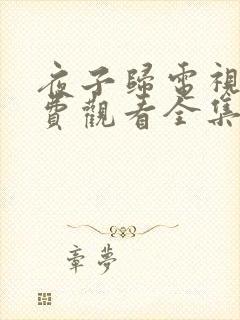 夜子歸電視
費觀看全集
章夢